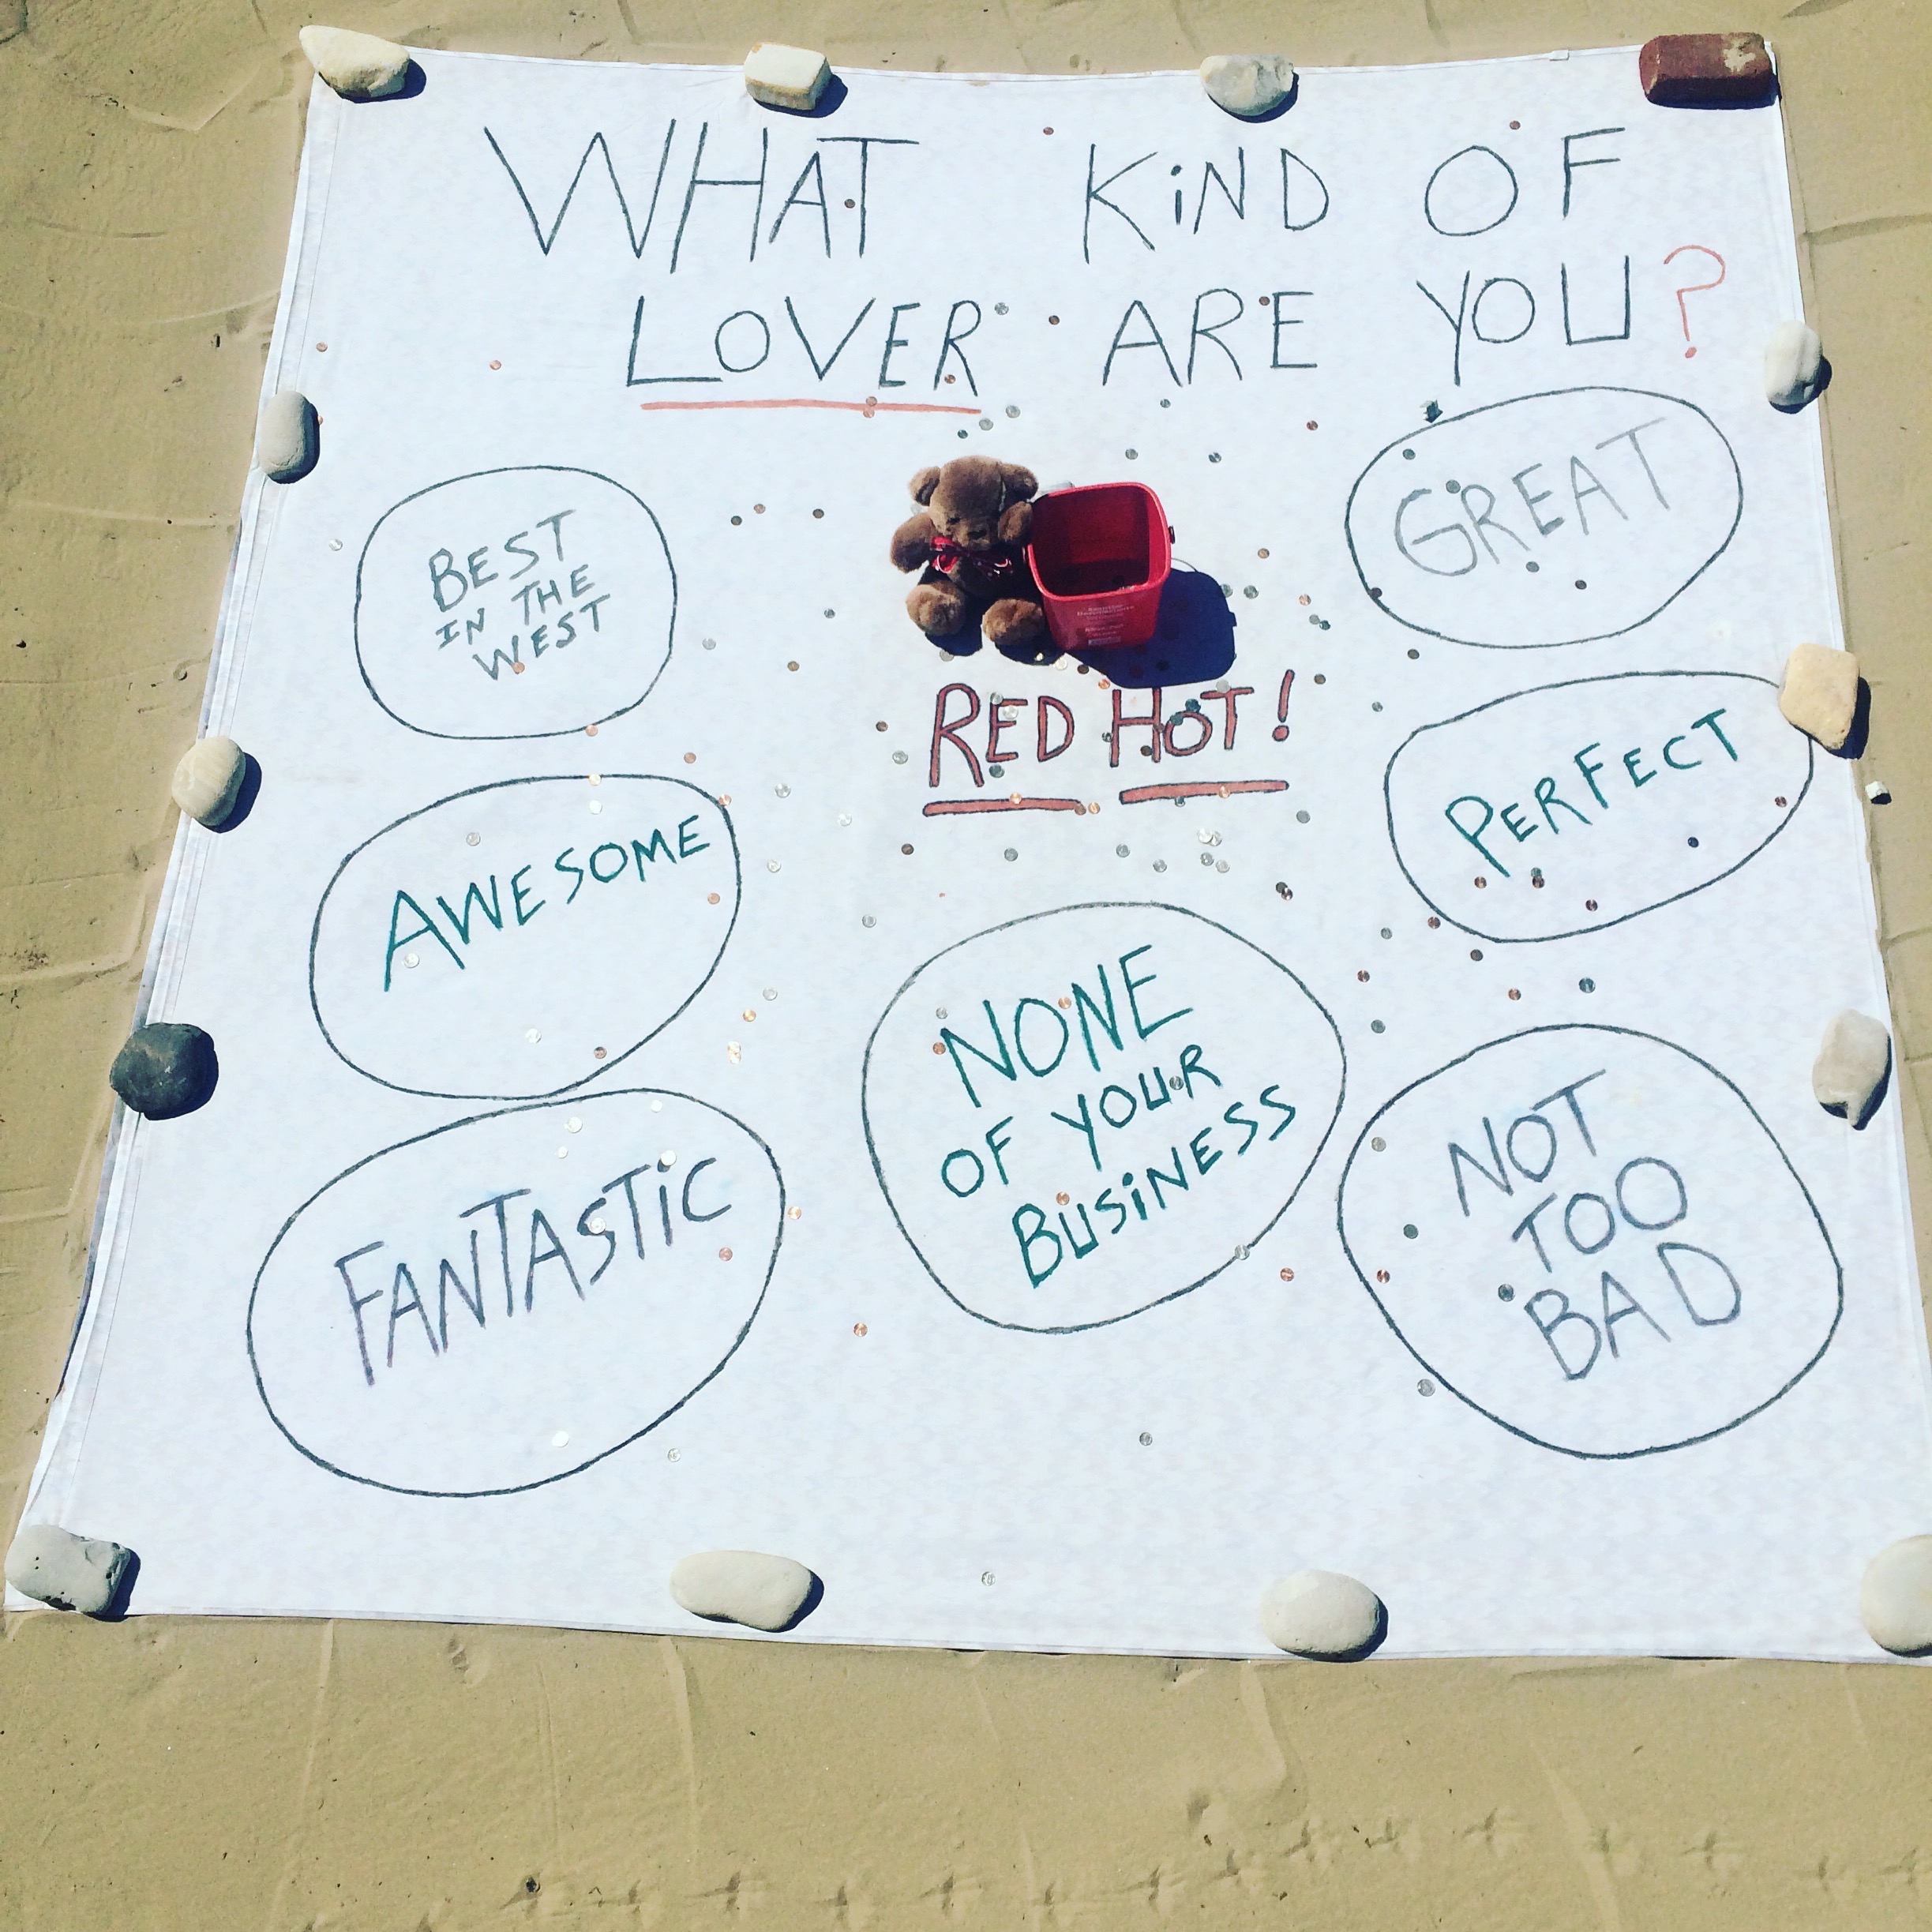 WHAT KiND OF
LOVER ARE YOU?
BEST
IN THE
WEST
GREAT
RED HOT!
PERFECT
AWESOME
NONE
OF YOUR
BUSiNESS
FANTASTiC
NOT
TOO
BAD